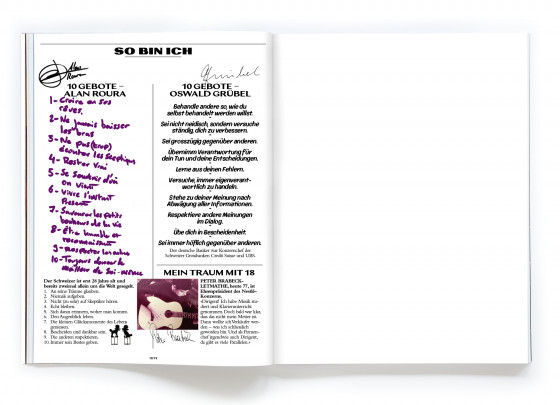 SO BIN ICH
Alan
Roura
10 GEBOTE –
ALAN ROURA
1- Croire en ses
rêves.
2- Ne jamais baisser
les bras
3- Ne pas (trop)
écouter les sceptiques
4- Rester vrai
5- Se souvenir d'où
on vient
6- Vivre l'instant
Présent
7- Savourer les petits
bonheurs de la vie
8- Être humble et
reconnaissant
9- respecter les autres
10- Toujours donner le
meilleur de soi-même
Der Schweizer ist erst 26 Jahre alt und
bereits zweimal allein um die Welt gesegelt.
1. An seine Träume glauben.
2. Niemals aufgeben.
3. Nicht (zu sehr) auf Skeptiker hören.
4. Echt bleiben.
5. Sich daran erinnern, woher man kommt.
6. Den Augenblick leben.
7. Die kleinen Glücksmomente des Lebens
geniessen.
8. Bescheiden und dankbar sein.
9. Die anderen respektieren.
10. Immer sein Bestes geben.
10 GEBOTE –
OSWALD GRÜBEL
Behandle andere so, wie du
selbst behandelt werden willst.
Sei nicht neidisch, sondern versuche
ständig, dich zu verbessern.
Sei grosszügig gegenüber anderen.
Übernimm Verantwortung für
dein Tun und deine Entscheidungen.
Lerne aus deinen Fehlern.
Versuche, immer eigenverant-
wortlich zu handeln.
Stehe zu deiner Meinung nach
Abwägung aller Informationen.
Respektiere andere Meinungen
im Dialog.
Übe dich in Bescheidenheit.
Sei immer höflich gegenüber anderen.
Der deutsche Banker war Konzernchef der
Schweizer Grossbanken Credit Suisse und UBS.
MEIN TRAUM MIT 18
PETER BRABECK-
LETMATHE, heute 77, ist
Ehrenpräsident des Nestlé-
Konzerns.
«Dirigent! Ich habe Musik stu-
diert und Klavierunterricht
genommen. Doch bald war klar,
dass das nicht mein Metier ist.
Dann wollte ich Verkäufer wer-
den – was ich schliesslich
geworden bin. Und als Firmen-
chef irgendwie auch Dirigent,
da gibt es viele Parallelen.»